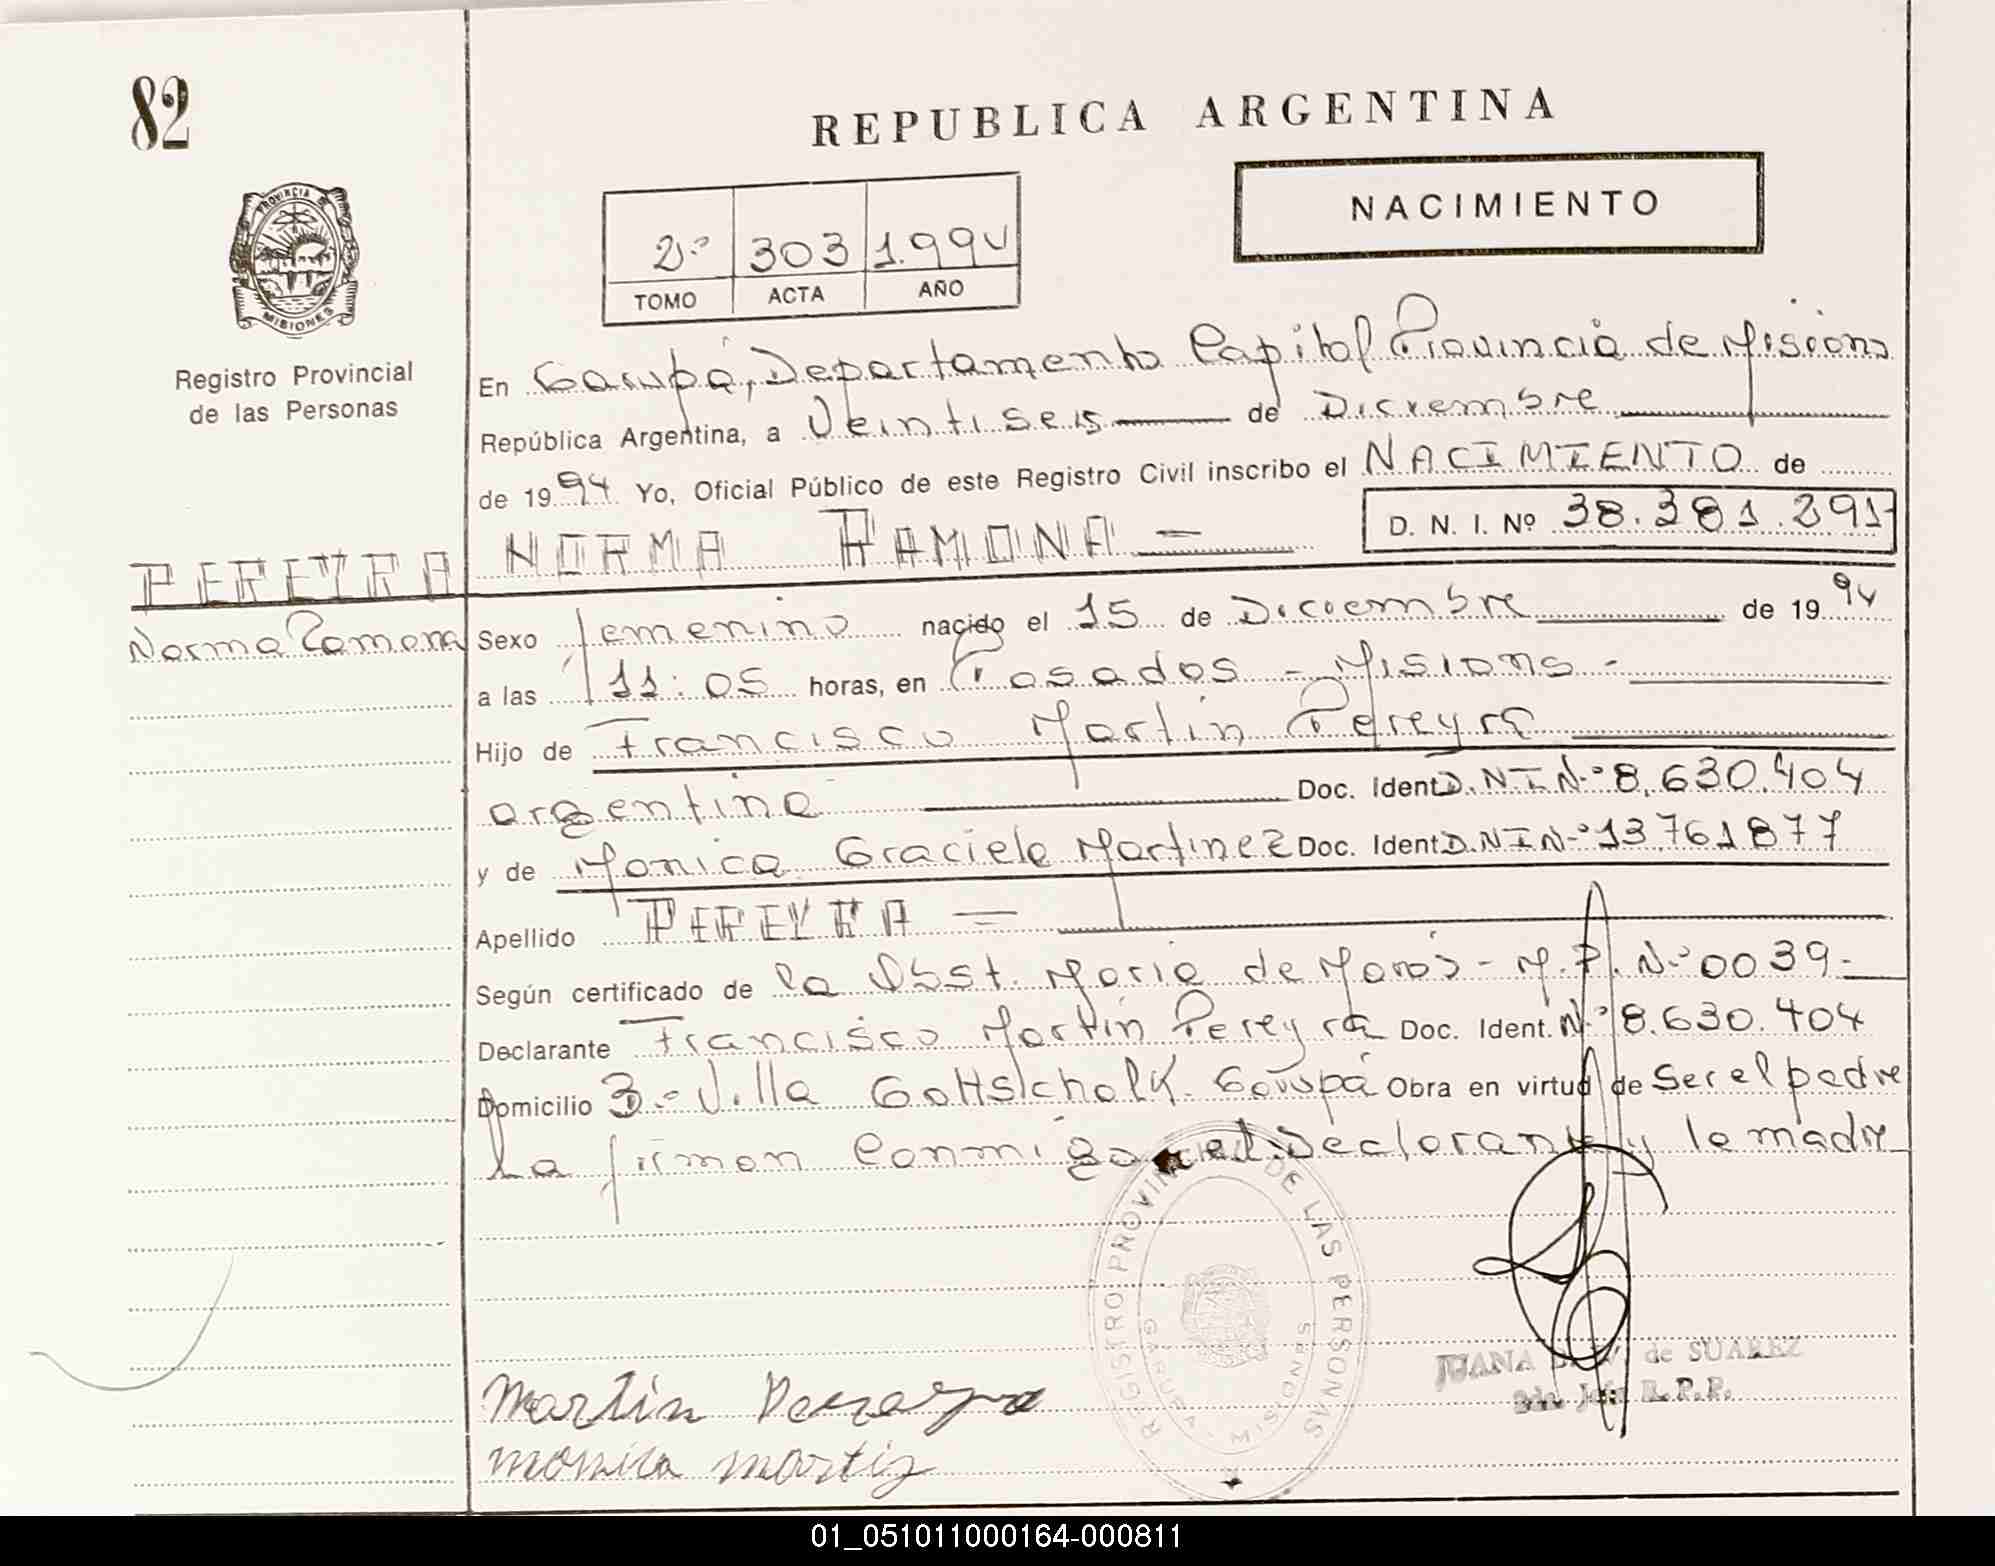 82
REPUBLICA ARGENTINA
NACIMIENTO
2º 303 1.994
TOMO ACTA AÑO
PROVINCIA DE MISIONES
Registro Provincial
de las Personas
En Garupá, Departamento Capital Provincia de Misiones
República Argentina, a Veintiseis de Diciembre
de 1994 Yo, Oficial Público de este Registro Civil inscribo el NACIMIENTO de
D. N. I. Nº 38.381.291
PEREYRA NORMA RAMONA
Norma Ramona
Sexo femenino nacido el 15 de Diciembre de 1994
a las 11:05 horas, en Posadas - Misiones -
Hijo de Francisco Martin Pereyra
argentina Doc. Ident D.N.I Nº 8.630.404
y de Monica Graciela Martinez Doc. Ident D.N.I Nº 13.761877
Apellido PEREYRA
Según certificado de la Obst. Maria de - M.P. Nº 0039-
Declarante Francisco Martin Pereyra Doc. Ident. Nº 8.630.404
Domicilio Bº Villa Gottschalk. Garupá Obra en virtud de ser el padre
La firman Conmigo el Declarante y la madre
REGISTRO PROVINCIAL DE LAS PERSONAS
GARUPA - MISIONES
JUANA de SUAREZ
2da. Jefa R.P.P.
Martin Pereyra
monica martiz
01_051011000164-000811